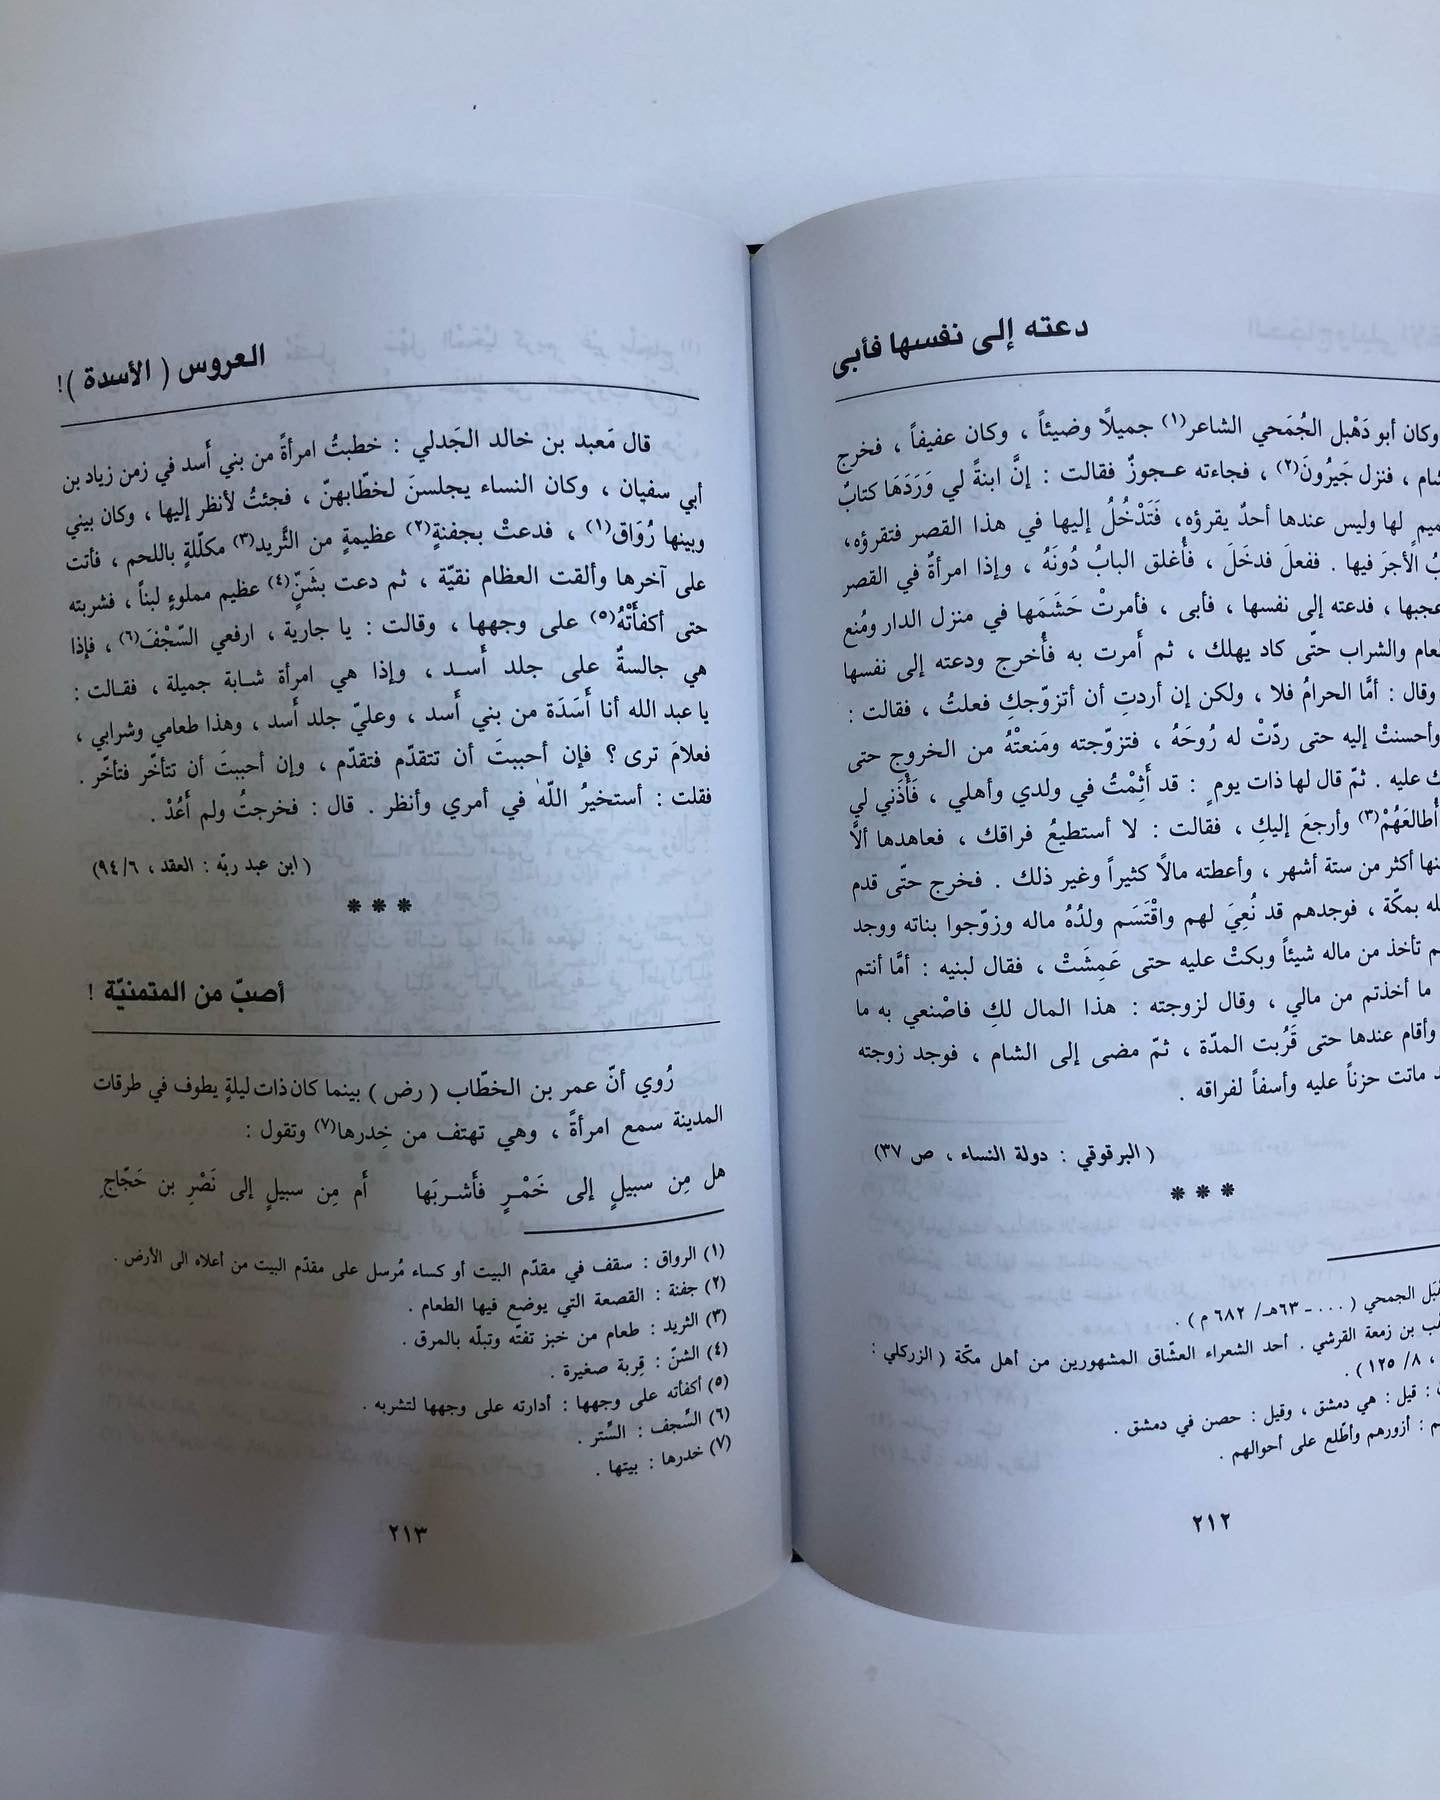 دعته إلى نفسها فأبى
وكان أبو دَهْبل الجُمَحي الشاعر(١) جميلاً وضيئاً ، وكان عفيفاً ، فخرج
فنزل جَيرُونَ(٢) ، فجاءته عجوزٌ فقالت : إنَّ ابنةً لي وَرَدَهَا كتابٌ
لها وليس عندها أحدٌ يقرؤه، فَتَدْخُلُ إليها في هذا القصر فتقرؤه،
الأجرَ فيها . ففعلَ فدخَلَ ، فأُغلق البابُ دُونَهُ ، وإذا امرأةٌ في القصر
فدعته إلى نفسها ، فأبى ، فأمرتْ حَشَمَها في منزل الدار ومُنع
والشراب حتّى كاد يهلك ، ثم أَمرت به فأُخرج ودعته إلى نفسها
وقال : أمَّا الحرامُ فلا ، ولكن إن أردتِ أن أتزوّجكِ فعلتُ ، فقالت :
وأحسنتْ إليه حتى ردّتْ له رُوحَهُ ، فتزوّجته ومَنعتْهُ من الخروج حتى
عليه . ثمّ قال لها ذات يومٍ : قد أَثِمْتُ في ولدي وأهلي ، فَأْذَني لي
أُطالعَهُمْ(٣) وأرجعَ إليكِ ، فقالت : لا أستطيعُ فراقك ، فعاهدها ألاَّ
أكثر من ستة أشهر ، وأعطته مالاً كثيراً وغير ذلك . فخرج حتّى قدم
بمكّة ، فوجدهم قد نُعِيَ لهم واقْتَسَم ولدُهُ ماله وزوّجوا بناته ووجد
تأخذ من ماله شيئاً وبكتْ عليه حتى عَمِشَتْ ، فقال لبنيه : أمَّا أنتم
ما أخذتم من مالي ، وقال لزوجته : هذا المال لكِ فاصْنعي به ما
وأقام عندها حتى قَرُبت المدّة ، ثمّ مضى إلى الشام ، فوجد زوجته
ماتت حزناً عليه وأسفاً لفراقه .
( البرقوقي : دولة النساء ، ص ٣٧)
* * *
الجمحي ( ... - ٦٣هـ/ ٦٨٢ م ) .
بن زمعة القرشي . أحد الشعراء العشّاق المشهورين من أهل مكّة ( الزركلي :
، ٨/ ١٢٥ ) .
قيل : هي دمشق ، وقيل : حصن في دمشق .
: أزورهم وأطّلع على أحوالهم .
٢١٢
العروس ( الأسدة )!
قال مَعبد بن خالد الجَدلي : خطبتُ امرأةً من بني أَسد في زمن زياد بن
أبي سفيان ، وكان النساء يجلسنَ لخطّابهنّ ، فجئتُ لأنظر إليها ، وكان بيني
وبينها رُوَاق(١) ، فدعتْ بجفنةٍ(٢) عظيمةٍ من الثَّريد(٣) مكلّلةٍ باللحم ، فأتت
على آخرها وألقت العظام نقيّة ، ثم دعت بشَنّ(٤) عظيم مملوءٍ لبناً ، فشربته
حتى أكفأَتْهُ(٥) على وجهها ، وقالت : يا جارية ، ارفعي السّجْفَ(٦) ، فإذا
هي جالسةٌ على جلد أَسد ، وإذا هي امرأة شابة جميلة ، فقالت :
يا عبد الله أنا أَسَدَة من بني أَسد ، وعليّ جلد أَسد ، وهذا طعامي وشرابي ،
فعلامَ ترى ؟ فإن أحببتَ أن تتقدّم فتقدّم ، وإن أحببتَ أن تتأخّر فتأخّر .
فقلت : أستخيرُ اللّهَ في أمري وأنظر . قال : فخرجتُ ولم أَعُدْ .
( ابن عبد ربّه : العقد ، ٩٤/٦)
* * *
أصبّ من المتمنيّة !
رُوي أنّ عمر بن الخطّاب ( رض ) بينما كان ذات ليلةٍ يطوف في طرقات
المدينة سمع امرأةً ، وهي تهتف من خِدرها(٧) وتقول :
هل مِن سبيلٍ إلى خَمْرٍ فأَشربَها أم مِن سبيلٍ إلى نَصْرِ بن حَجّاجِ
(١) الرواق : سقف في مقدّم البيت أو كساء مُرسل على مقدّم البيت من أعلاه الى الأرض .
(٢) جفنة : القصعة التي يوضع فيها الطعام .
(٣) الثريد : طعام من خبز تفتّه وتبلّه بالمرق .
(٤) الشنّ : قِربة صغيرة .
(٥) أكفأته على وجهها : أدارته على وجهها لتشربه .
(٦) السِّجف : السِّتر .
(٧) خدرها : بيتها .
٢١٣